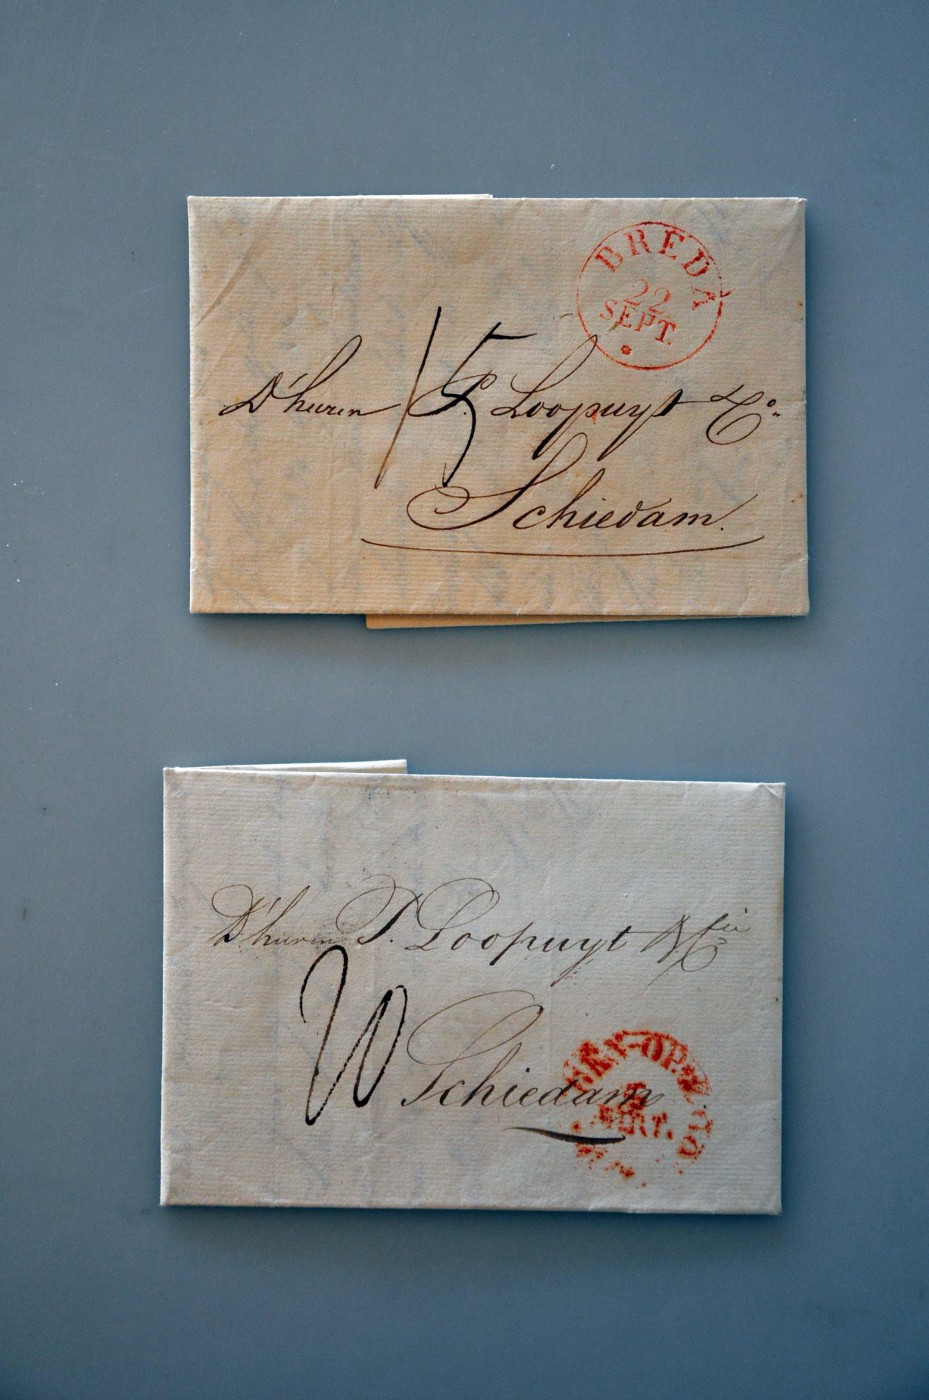 BREDA
22
SEPT.
15
D'heeren P. Loopuyt & Co.
Schiedam.
D'heeren P. Loopuyt & Cie
Schiedam
SEPT.